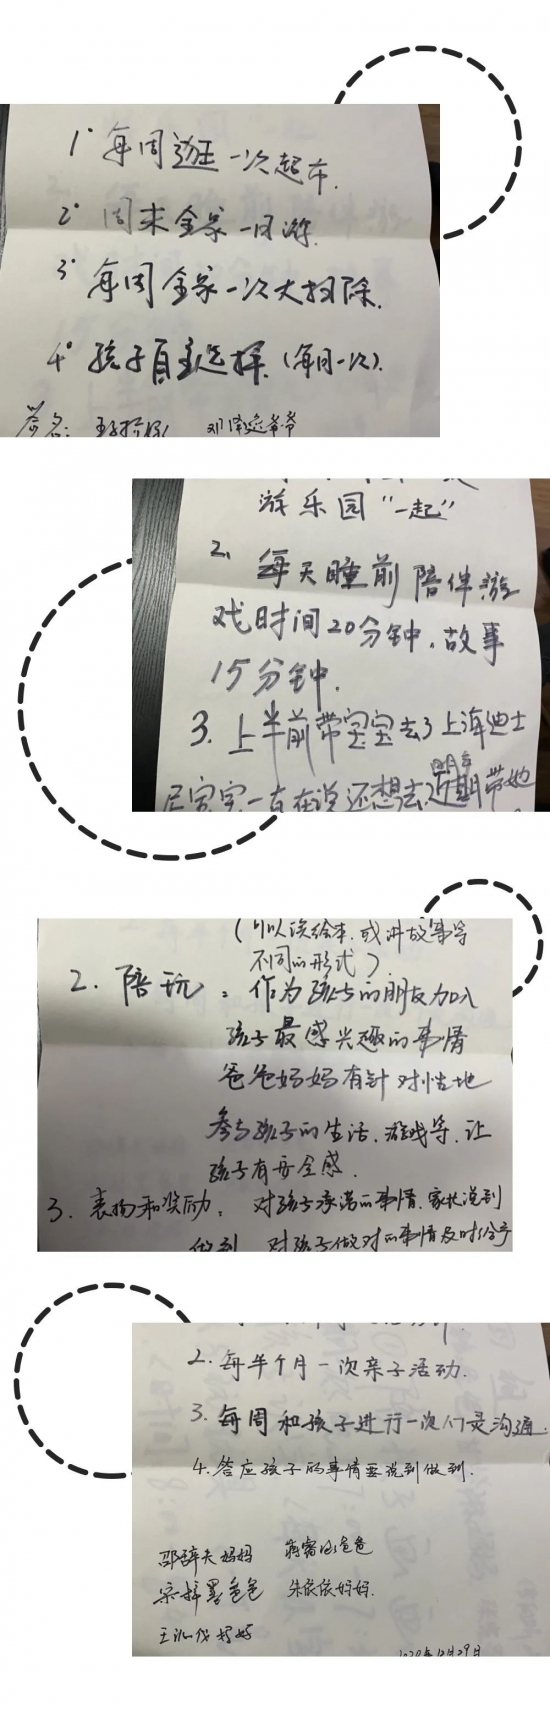 1° 每周逛一次超市.
2° 周末全家一日游.
3° 每周全家一次大扫除.
4° 孩子自主选择.(每月一次).
签名:
游乐园“一起”
2、每天睡前陪伴游
戏时间20分钟.故事
15分钟.
3. 上半前带宝宝去了上海迪士
尼宝宝一直在说还想去近期带她
(可以读绘本.或讲故事等
不同的形式)
2. 陪玩：作为孩子的朋友加入
孩子最感兴趣的事情
爸爸妈妈有针对性地
参与孩子的生活.游戏等.让
孩子有安全感.
3. 表扬和奖励：对孩子承诺的事情.家长说到
做到 对孩子做对的事情及时给予
2. 每半个月一次亲子活动.
3. 每周和孩子进行一次心灵沟通.
4. 答应孩子的事情要说到做到.
妈妈 爸爸
爸爸 朱依依妈妈.
2020年12月29日